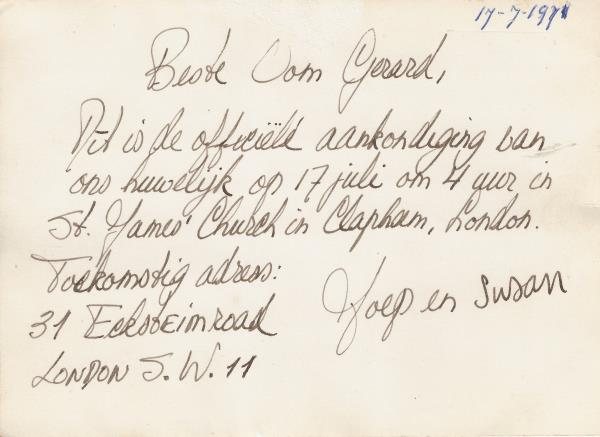 17-7-1971
Beste Oom Gerard,
Dit is de officiële aankondiging van
ons huwelijk op 17 juli om 4 uur in
St. James' Church in Clapham, London.
Toekomstig adress:
31 Ecksteinroad
LONDON S.W. 11
Joep en Susan